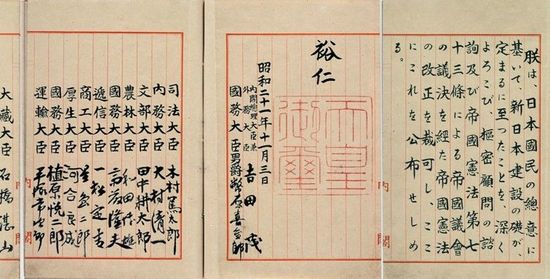 朕は、日本國民の總意に
基いて、新日本建設の礎が、
定まるに至つたことを、深く
よろこび、樞密顧問の諮
詢及び帝國憲法第七
十三條による帝國議會
の議決を經た帝國憲法
の改正を裁可し、ここ
にこれを公布せしめ
る。
内閣
裕仁
天皇
御璽
昭和二十一年十一月三日
内閣總理大臣兼
外務大臣 吉田茂
國務大臣男爵幣原喜重郎
内閣
司法大臣 木村篤太郎
内務大臣 大村清一
文部大臣 田中耕太郎
農林大臣 和田博雄
國務大臣 斎藤隆夫
遞信大臣 一松定吉
商工大臣 星島二郎
厚生大臣 河合良成
國務大臣 植原悦二郎
運輸大臣 平塚常次郎
大藏大臣 石橋湛山